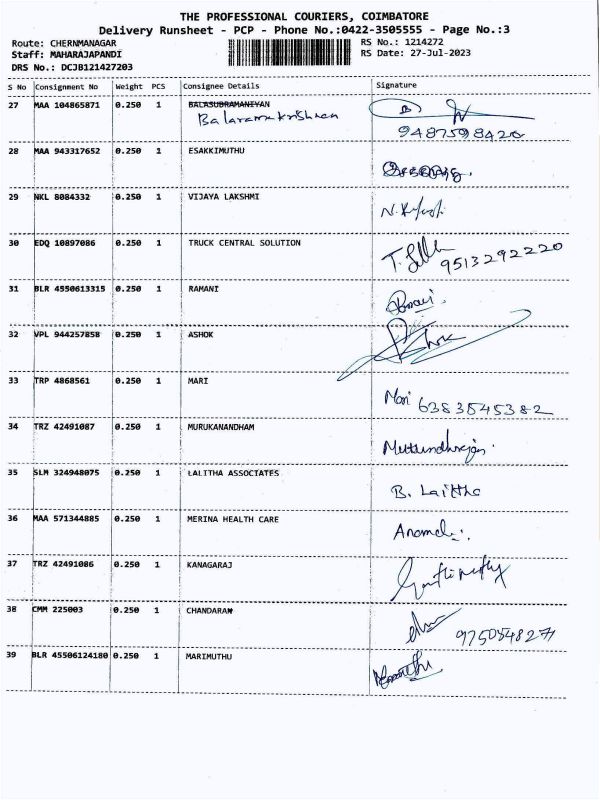 THE PROFESSIONAL COURIERS, COIMBATORE
Delivery Runsheet - PCP - Phone No.:0422-3505555 - Page No.:3
Route: CHERNMANAGAR
Staff: MAHARAJAPANDI
DRS No.: DCJB121427203
RS No.: 1214272
RS Date: 27-Jul-2023
S No Consignment No Weight PCS Consignee Details Signature
27 MAA 104865871 0.250 1 BALASUBRAMANIYAN
Balaramakrishnan
9487598420
28 MAA 943317652 0.250 1 ESAKKIMUTHU
29 NKL 8084332 0.250 1 VIJAYA LAKSHMI
30 EDQ 10897086 0.250 1 TRUCK CENTRAL SOLUTION
9513292220
31 BLR 4550613315 0.250 1 RAMANI
32 VPL 944257858 0.250 1 ASHOK
33 TRP 4868561 0.250 1 MARI
Mari 6383545382
34 TRZ 42491087 0.250 1 MURUKANANDHAM
35 SLM 324948075 0.250 1 LALITHA ASSOCIATES
36 MAA 571344885 0.250 1 MERINA HEALTH CARE
37 TRZ 42491086 0.250 1 KANAGARAJ
38 CMM 225003 0.250 1 CHANDARAN
9750548271
39 BLR 45506124180 0.250 1 MARIMUTHU